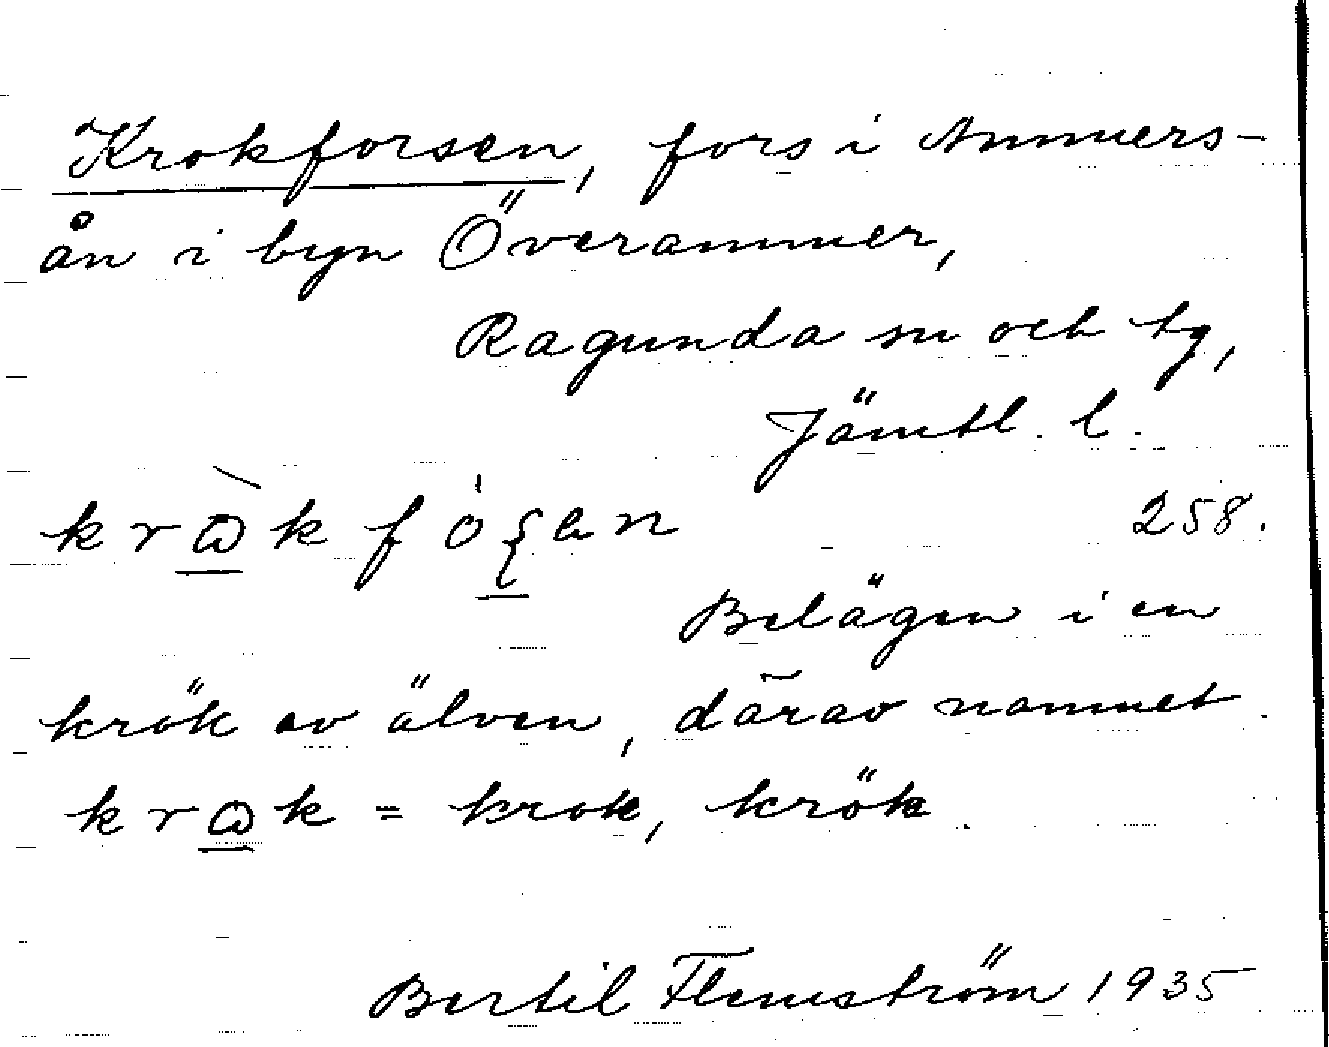 Krokforsen, fors i Ammers-
ån i byn Överammer,
Ragunda sn och tg,
Jämtl. l.
krꞷ̀k fóʂan 258.
Belägen i en
krök av älven, därav namnet.
krꞷk = krok, krök.
Bertil Flemström 1935